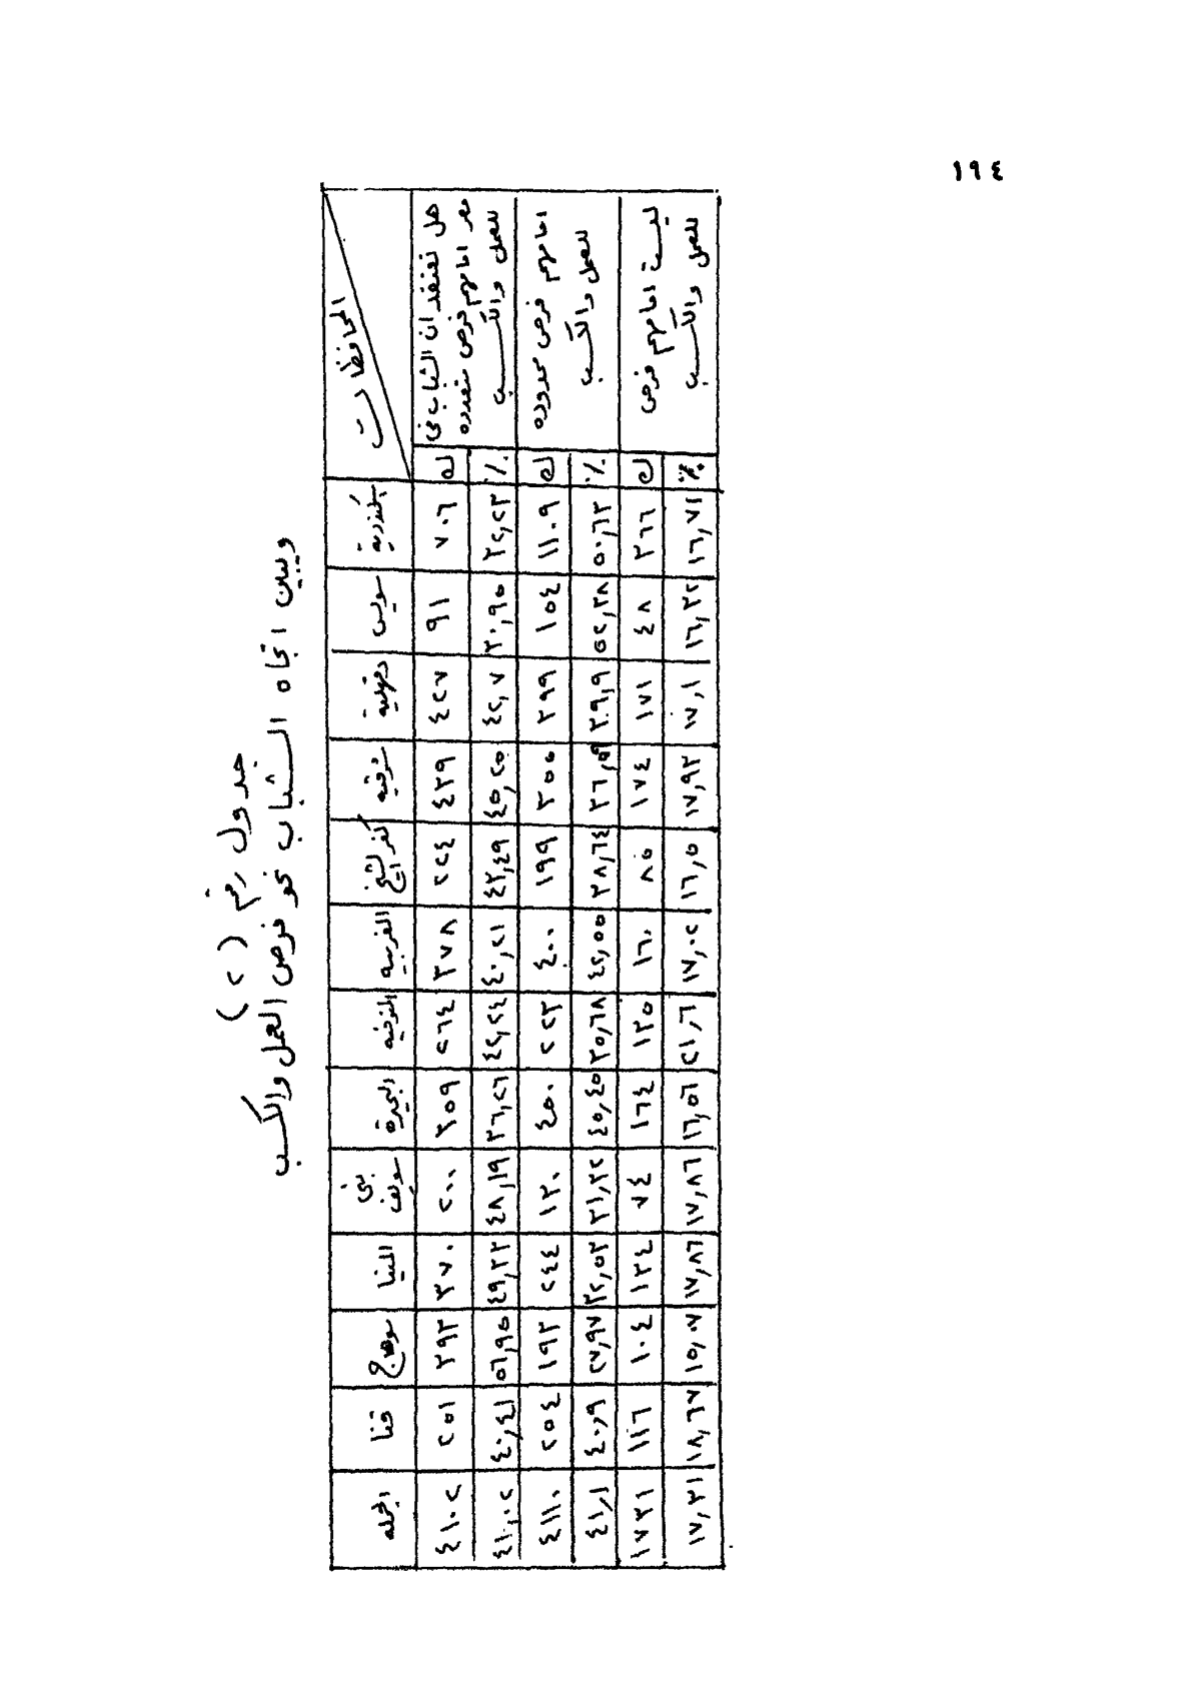 ١٩٤
جدول رقم (٢)
ويبين اتجاه الشباب نحو فرص العمل والكسب
المحافظات اسكندرية سويس دقهلية شرقيه كفر الشيخ الغربيه المنوفيه البحيرة بنى سويف المنيا سوهاج قنا الجمله
هل تعتقد ان الشباب فى
مصر امامهم فرص متعدده
للعمل والكسب
ك ٧٠٦ ٩١ ٤٢٧ ٤٣٩ ٢٢٤ ٣٧٨ ٢٦٤ ٣٥٩ ٢٠٠ ٣٧٠ ٣٩٣ ٢٥١ ٤١٠٢
٪ ٣٢,٢٣ ٣٠,٩٥ ٤٢,٧ ٤٥,٢٥ ٤٣,٤٩ ٤٠,٢١ ٤٢,٢٤ ٣٦,٢٦ ٤٨,١٩ ٤٩,٣٣ ٥٦,٩٥ ٤٠,٤١ ٤١,٠٢
امامهم فرص محدوده
للعمل والكسب
ك ١١٠٩ ١٥٤ ٣٩٩ ٣٥٥ ١٩٩ ٤٠٠ ٢٢٣ ٤٥٠ ١٣٠ ٢٤٤ ١٩٣ ٢٥٤ ٤١١٠
٪ ٥٠,٦٣ ٥٢,٣٨ ٣٩,٩ ٣٦,٥٩ ٣٨,٦٤ ٤٢,٥٥ ٣٥,٦٨ ٤٥,٤٥ ٣١,٣٢ ٣٢,٥٣ ٢٧,٩٧ ٤٠,٩ ٤١,١
ليست امامهم فرص
للعمل والكسب
ك ٣٦٦ ٤٨ ١٧١ ١٧٤ ٨٥ ١٦٠ ١٣٥ ١٦٤ ٧٤ ١٣٤ ١٠٤ ١١٦ ١٧٣١
٪ ١٦,٧١ ١٦,٣٢ ١٧,١ ١٧,٩٣ ١٦,٥ ١٧,٠٢ ٢١,٦ ١٦,٥٦ ١٧,٨٦ ١٧,٨٦ ١٥,٠٧ ١٨,٦٧ ١٧,٣١